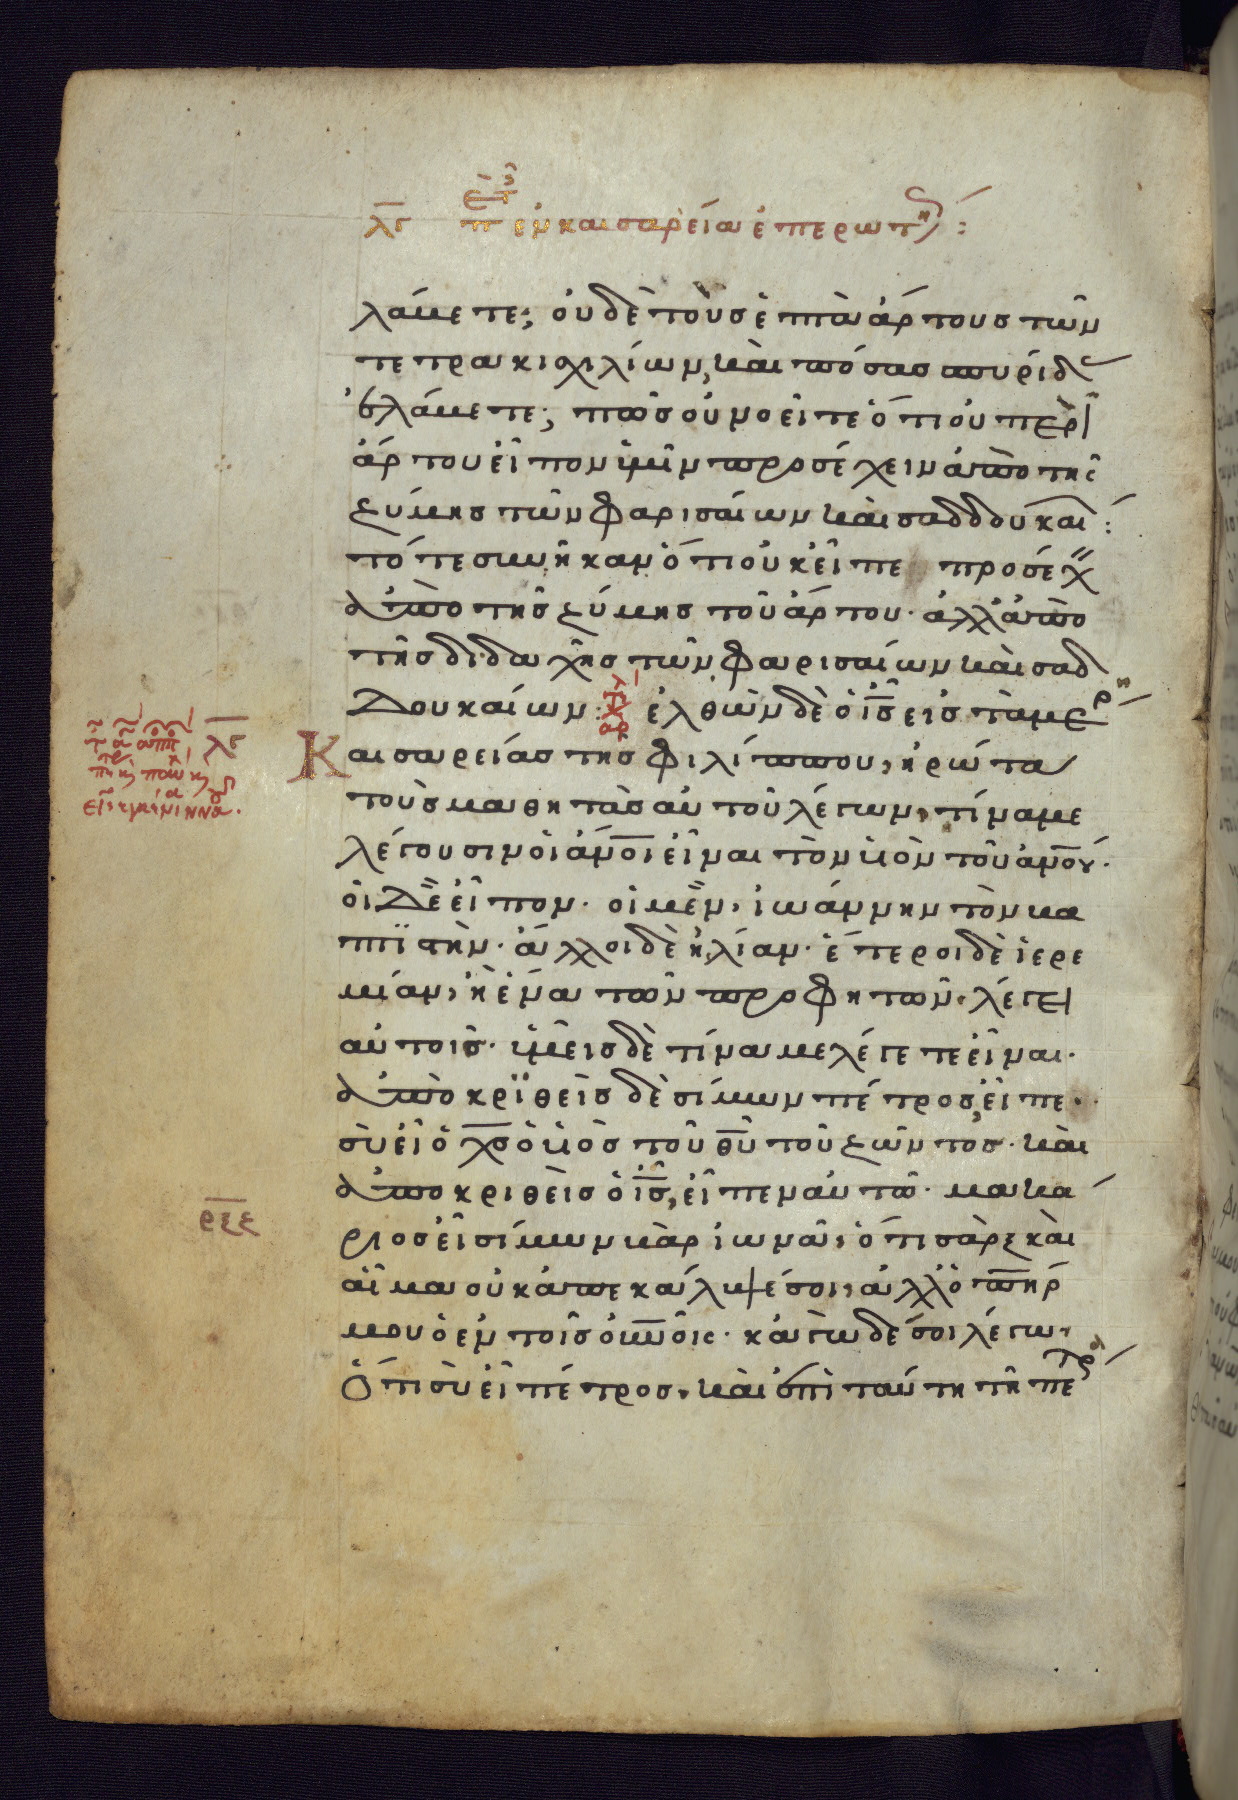 λϛ περὶ ἐν καισαρεία ἐπερωτή :
λάβετε; οὐδὲ τοὺς ἑπτὰ ἄρτους τῶν
τετρακισχιλίων, καὶ πόσας σπυρίδ
ἐλάβετε; πῶς οὐ νοεῖτε ὅτι οὐ περὶ
ἄρτου εἶπον ὑμῖν προσέχειν ἀπὸ τῆς
ζύμης τῶν φαρισαίων καὶ σαδδουκαί:
τότε συνῆκαν ὅτι οὐκ εἶπε προσέχ
ἀπὸ τῆς ζύμης τοῦ ἄρτου· ἀλλ' ἀπὸ
τῆς διδαχῆς τῶν φαρισαίων καὶ σαδ
δουκαίων· ἐλθὼν δὲ ὁ ἰς εἰς τὰ μέρη
λϛ
Καισαρείας τῆς φιλίππου, ἠρώτα
τοὺς μαθητὰς αὐτοῦ λέγων, τίνα με
λέγουσιν οἱ ἀνοι εἶναι τὸν υἱὸν τοῦ ἀνου·
οἱ δὲ εἶπον· οἱ μὲν, ἰωάννην τὸν βα
πτϊστὴν· ἄλλοι δὲ ἠλίαν· ἕτεροι δὲ ἱερε
μίαν, ἢ ἕνα τῶν προφητῶν. λέγει
αὐτοῖς· ὑμεῖς δὲ τίνα με λέγετε εἶναι·
ἀποκρϊθεὶς δὲ σίμων πέτρος, εἶπε·
σὺ εἶ ὁ χς ὁ υἱὸς τοῦ θυ τοῦ ζῶντος· καὶ
ἀποκριθεὶς ὁ ἰς, εἶπεν αὐτῶ· μακά
ρξϛ
ριος εἶ σίμων βὰρ ἰωνᾶ, ὅτι σὰρξ καὶ
αἷμα οὐκ ἀπεκάλυψέ σοι, ἀλλ' ὁ πηρ
μου ὁ ἐν τοῖς οὐνοις· κἀγὼ δέ σοι λέγω,
ὅτι σὺ εἶ πέτρος, καὶ ἐπὶ ταύτη τῆ πέτρα